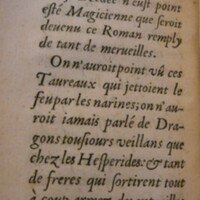 n'eust point
esté Magicienne que seroit
deuenu ce Roman remply
de tant de merueilles.
On n'auroit point vû cet
Taureaux qui jettoient le
feu par les narines; on n'au
roit iamais parlé de Dra
gons tousiours veillans que
chez les Hesperides: & tant
de freres qui sortirent tout
à coup